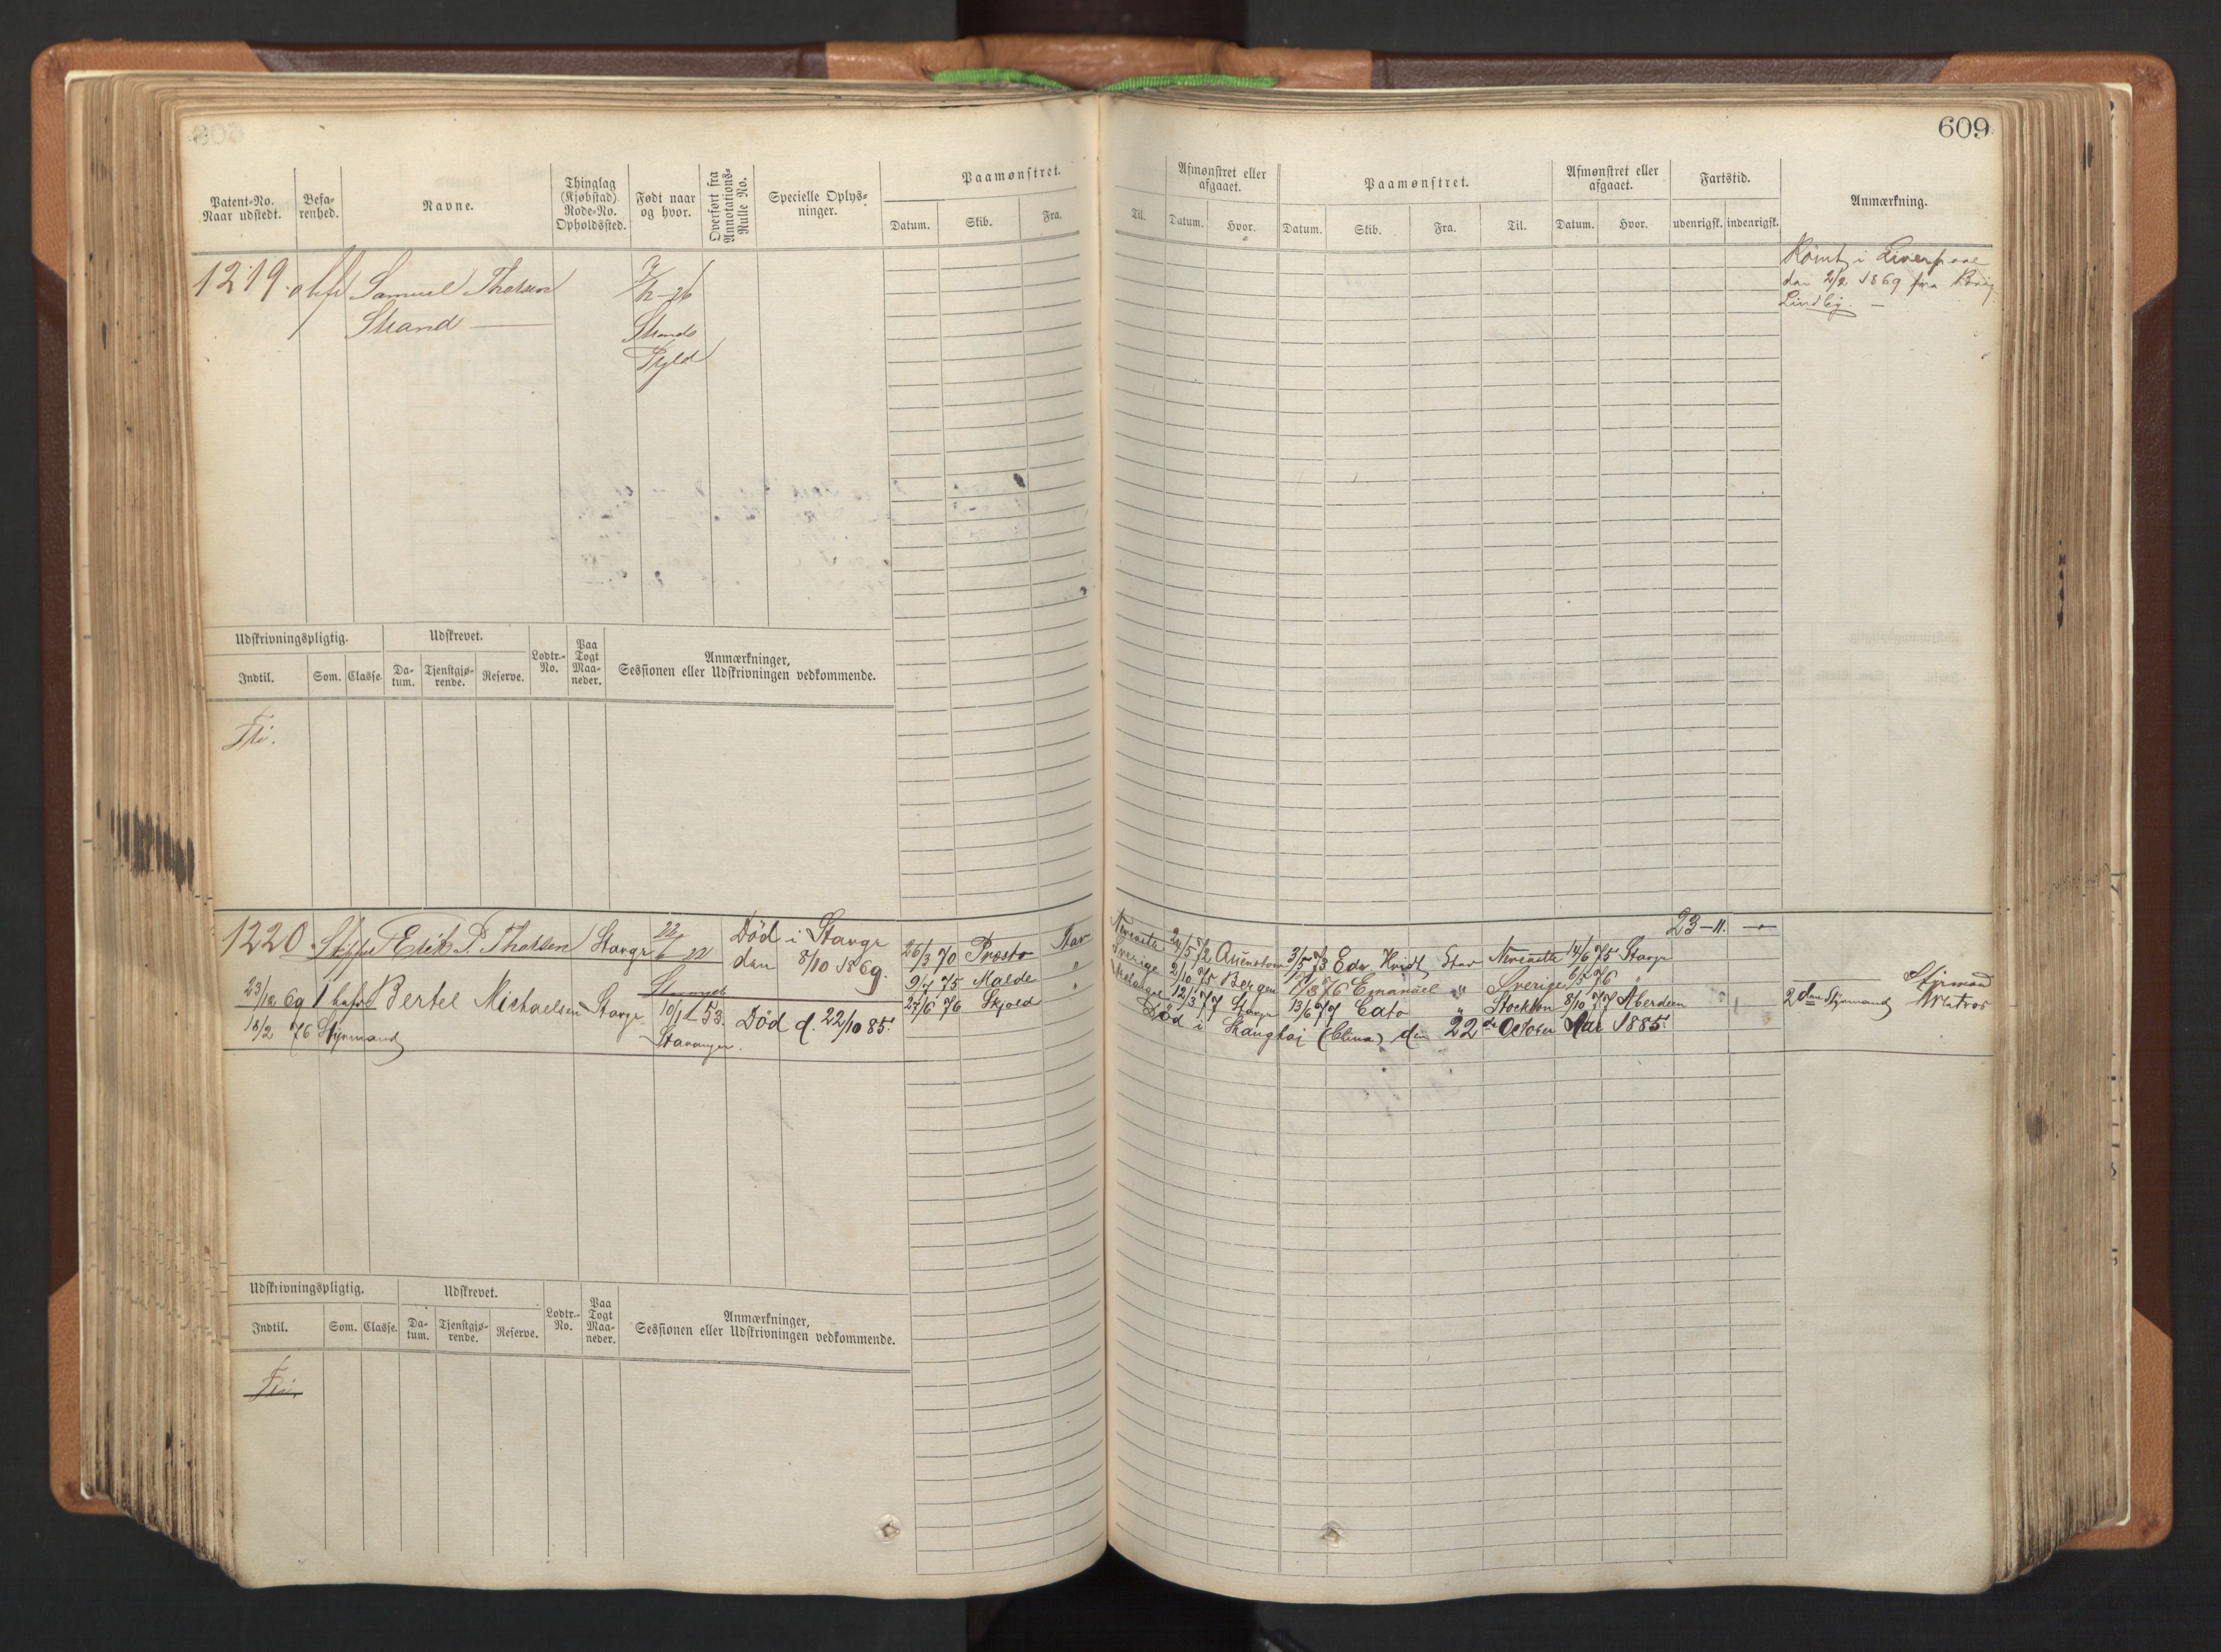 609
Patent-No. Naar udstedt.
Befarenhed.
Navne.
Thinglag (Kjøbstad) Rode-No. Opholdssted.
Født naar og hvor.
Overført fra Annotations-Rulle No.
Specielle Oplysninger.
Paamønstret.
Datum.
Skib.
Fra.
Til.
Afmønstret eller afgaaet.
Datum.
Hvor.
Paamønstret.
Datum.
Skib.
Fra.
Til.
Afmønstret eller afgaaet.
Datum.
Hvor.
Fartstid.
udenrigsk.
indenrigsk.
Anmærkning.
1219 Samuel Thorsen
Strand
Strands
Rømt i Liverpool
den 2/2 1869 fra Brig
Lindby.
Udskrivningspligtig.
Udskrevet.
Lodtr.-No.
Paa Togt Maaneder.
Anmærkninger,
Sessionen eller Udskrivningen vedkommende.
Indtil.
Som.
Classe.
Datum.
Tjenstgjørende.
Reserve.
Fri.
1220 Erik P. Thorsen Stavgr 6 22 Død i Stavgr
den 8/10 1869.
26/3 70 Præsto Stav 24/5 72 3/5 73 Edv Hvidt Stav 14/6 75 Stavgr
23-11.
9/7 75 Malde " Sverige 2/10 75 Bergen 76 Emanuel " Sverige 76 " Styrmand
27/6 76 Skjold " 12/3 77 Stavgr 13/6 77 Cato " Stockhm 8/10 77 Aberdeen 2den Styrmand Matros
23/12 69 Bertel Michaelsen Stavgr 10/1 53. Død d. 22/10 85.
Stavanger.
18/2 76 Styrmand
Død i Shanghaj (China) den 22de October Aar 1885.
Udskrivningspligtig.
Udskrevet.
Lodtr.-No.
Paa Togt Maaneder.
Anmærkninger,
Sessionen eller Udskrivningen vedkommende.
Indtil.
Som.
Classe.
Datum.
Tjenstgjørende.
Reserve.
Fri.